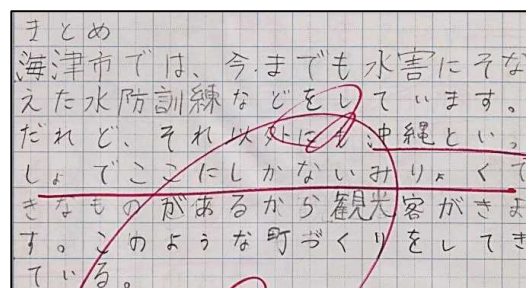 まとめ
海津市では、今までも水害にそな
えた水防訓練などをしています。
だれど、それ以外にも沖縄といっ
しょでここにしかないみりょくて
きなものがあるから観光客がきま
す。このような町づくりをしてき
ている。